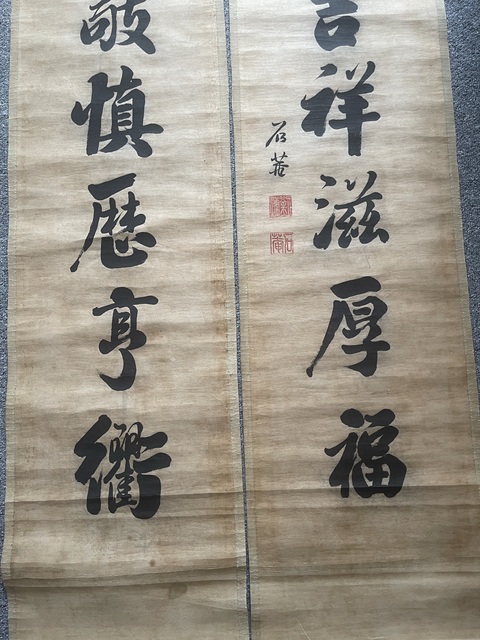 吉祥滋厚福
石菴
石菴
敬慎歷亨衢